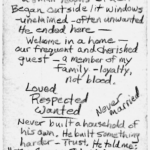 Began outside/it windows
-unclaimed-often unwanted
He ended here —
Welcome in a home —
our frequent and cherished
guest - a member of my
family - loyalty,
not blood.
Loved
Respected
Wanted
Never Tried
Never built a household of
his own. He built something
harder - Trust. He told me: